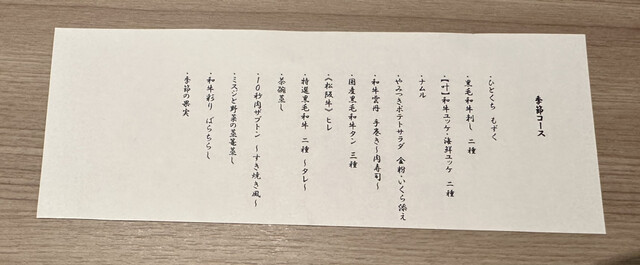 季節コース
・ひとくち もずく
・黒毛和牛刺し 二種
・【叶】和牛ユッケ・海鮮ユッケ 二種
・ナムル
・やみつきポテトサラダ 金粉・いくら添え
・和牛雲丹 手巻き~肉寿司~
・国産黒毛和牛タン 三種
・《松阪牛》ヒレ
・特選黒毛和牛 二種 ~タレ~
・茶碗蒸し
・10秒肉ザブトン ~すき焼き風~
・ミスジと野菜の蒸篭蒸し
・和牛彩り ばらちらし
・季節の果実